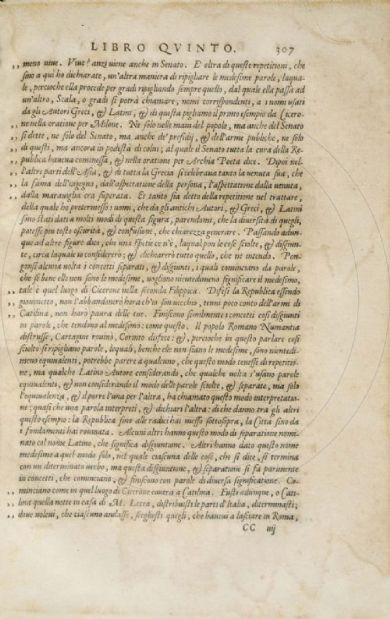 LIBRO QVINTO. 307
„ meno viue. Viue? anzi viene anche in Senato. E oltra di queste repetitioni, che
sino a qui ho dichiarate, un'altra maniera di ripigliare le medesime parole, laqua-
le, percioche ella procede per gradi ripigliando sempre quello, dal quale ella passa ad
un'altro, Scala, o gradi si potrà chiamare, nomi corrispondenti, a i nomi usati
da gli Autori Greci, & Latini, & di questa pigliamo il primo esempio da Cicero-
„ ne nella oratione per Milone. Ne solo nelle mani del popolo, ma anche del Senato
„ si dette, ne solo del Senato, ma anche de' presidij, & dell'arme publiche, ne solo
„ di questi, ma ancora in podestà di colui, al quale il Senato tutta la cura della Re-
„ publica haueua commessa, & nella oratione per Archia Poeta dice. Dipoi nel-
„ l'altre parti dell'Asia, & di tutta la Grecia si celebraua tanto la uenuta sua, che
„ la fama dell'ingegno, dall'aspettatione della persona, l'aspettatione dalla uenuta,
„ dalla marauiglia era superata. Et tanto sia detto della repetitione nel trattare,
della quale ho pretermesso i nomi, che da gli antichi Autori, & Greci, & Latini
sono stati dati a molti modi di questa figura, parendomi, che la diuersità di quegli,
potesse piu tosto oscurità, & confusione, che chiarezza generare. Passando adun-
que ad altre figure dico, che una spetie ce n'è, laqual pon le cose sciolte, & disgiun-
te, circa laquale io considererò; & dichiarerò tutto quello, che ne intendo. Pon-
gonsi alcuna uolta i concetti separati, & disgiunti, i quali cominciano da parole,
che se bene elle non sono le medesime, uogliono nientedimeno significare il medesimo,
„ tale è quel luogo di Cicerone nella seconda Filippica. Difesi la Republica essendo
„ giouanetto, non l'abbandonerò hora ch'io son uecchio, tenni poco conto dell'armi di
„ Catilina, non harò paura delle tue. Finiscono similmente i concetti cosi disgiunti
„ in parole, che tendono al medesimo: come questo. Il popolo Romano Numantia
„ distrusse, Cartagine rouinò, Corinto disfece; &, percioche in questo parlare cosi
sciolto si ripigliano parole, lequali, benche elle non siano le medesime, sono nientedi-
meno equiualenti, potrebbe parere a qualcuno, che questo modo tenesse di repetitio-
ne, ma qualche Latino Autore considerando, che qualche uolta s'usano parole
equiualenti, & non considerando il modo delle parole sciolte, & separate, ma solo
l'equiualenza, & il porre l'una per l'altra, ha chiamato questo modo interpretatio-
ne; quasi che una parola interpreti, & dichiari l'altra: di che danno tra gli altri
„ questo esempio: la Republica sino alle radici hai messo sottosopra, la Citta sino da
„ i fondamenti hai rouinata. Alcuni altri hanno questo modo di separatione nomi-
nato col nome Latino, che significa disgiuntione. Altri hanno dato questo nome
medesimo a quel modo solo, nel quale ciascuna delle cose, che si dice, si termina
con un determinato uerbo, ma questa disgiuntione, & separatione si fa parimente
in concetti, che cominciano, & finiscono con parole di diuersa significatione. Co-
„ minciano come in quel luogo di Cicerone contra a Catilina. Fusti adunque, o Cati-
„ lina quella notte in casa di M. Lecca, distribuisti le parti d'Italia, determinasti;
„ doue uoleui, che ciascuno andasse, scegliesti quegli, che haueui a lasciare in Roma,
CC iij